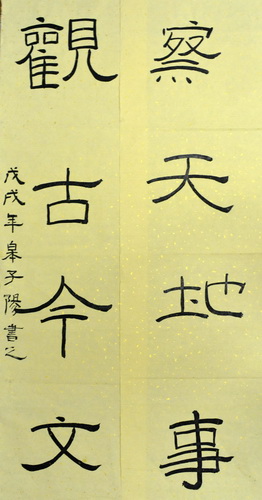 察天地事
觀古今文
戊戌年皋子陽書之